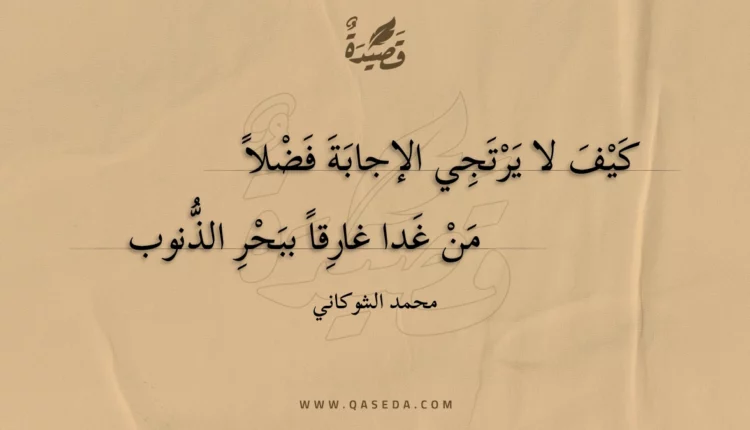 قَصِيدَةٌ
كَيْفَ لا يَرْتَجِي الإجابَةَ فَضْلاً
مَنْ غَدا غارِقاً ببَحْرِ الذُّنوب
محمد الشوكاني
WWW.QASEDA.COM